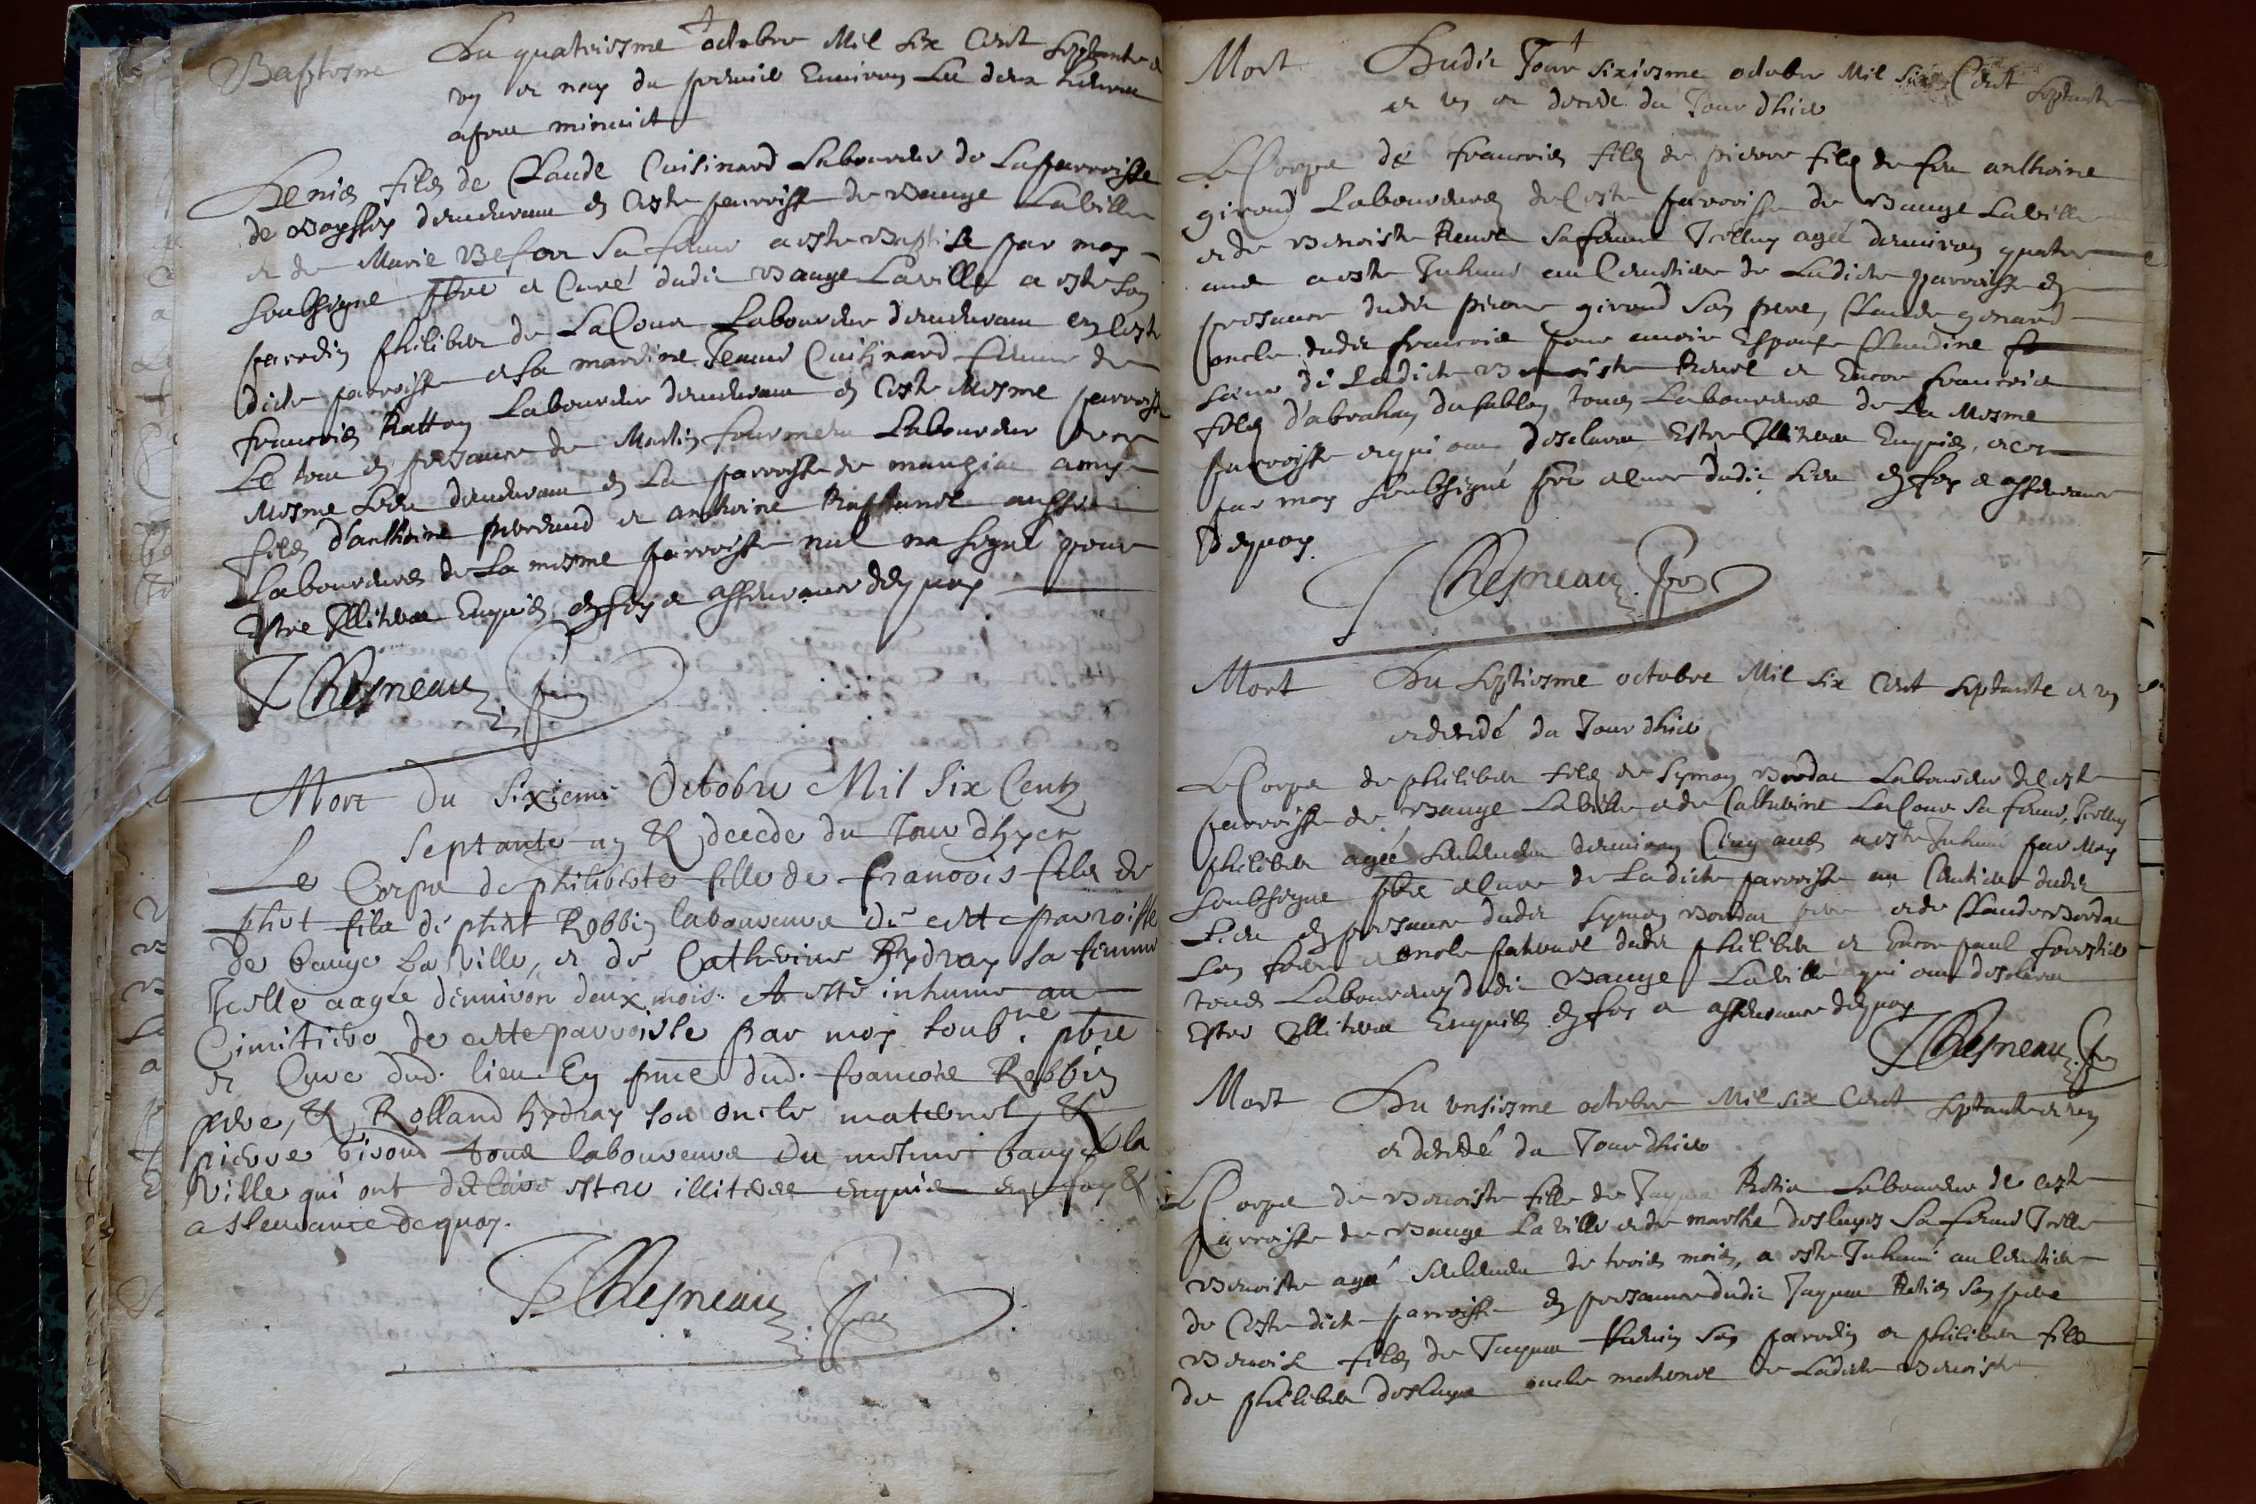 Baptesme Du quatriesme octobre Mil six Cent septante et
un et nay du premier Environ les deux heures
apres minuict
Denis filz de Claude Cuisinard Laboureur de La parroisse
de demeurant en Ceste parroisse de Bauge La ville
et de Marie Befor sa femme a este Baptise par moy
soubsigne pbre et Curé dudit Bauge La ville a este son
parrdin philibert de La Cour Laboureur demeurant en Ceste
dicte parroisse et sa mardine Jeanne Cuisinard femme de
francois Ratton Laboureur demeurant en Ceste Mesme parroisse
Le tout en presance de Martin fournera Laboureur
Mesme Lieu demeurant en La parroisse de
filz d'anthoine et anthoine aussi
Laboureurs de La mesme parroisse nul na signé pour
Estre Illiteres Enquis en foy et asseurance de quoy
J Chesneau pbre
Mort Du Sixieme Octobre Mil Six Centz
Septante un & decede du Jour dhyer
Le Corps de philiberte fille de francois filz de
phbt filz de phbt Robbin laboureurs de cette parroisse
de bauge La Ville, et de Catherine Hydray sa femme
Icelle aagée denviron deux mois. A esté inhumé au
Cimitiere de cette parroisse par moy soubne. pbre
et Curé dud. lieu En pnce dud. francois Robbin
pere, & Rolland hydray son oncle maternel, &
pierre Giroud tous laboureurs du mesme bauge la
Ville qui ont declaré estre illiteres enquis en foy &
asseurance de quoy.
J Chesneau pbre
Mort Dudit Jour sixiesme octobre Mil six Cent septante
et un et decedé du Jour dhier
Le Corps de francois filz de pierre filz de feu anthoine
giroud Laboureurs de Ceste parroisse de Bauge La ville
et de Benoiste Revel sa femme Icelluy agée denviron quatre
ans a este Inhumé au Cemetiere de Ladicte parroisse en
presance dudit pierre giroud son pere, Claude genard
oncle dudit francois pour avoir Espouse Claudine
soeur de Ladicte Benoiste Revel et Encor francois
filz d'abraham dusablon tous Laboureurs de La Mesme
parroisse et qui ont desclaire Estre Illiteres Enquis, et ce
par moy soubsigné pbre et Cure dudit Lieu en foy et asseurance
de quoy.
J Chesneau pbre
Mort Du septiesme octobre Mil six Cent septante et un
et decedé du Jour dhier
Le Corps de philibert filz de Symon Bordat Laboureur de Ceste
parroisse de Bauge La ville et de Catherine La Cour sa femme, Icelluy
philibert agée seulement denviron Cinq ans a este Inhumé par Moy
soubsigne pbre et Cure de Ladicte parroisse au Cemetiere dudit
Lieu en presance dudit Symon Bordat pere et de Claude Bordat
son frere et oncle paternel dudit philibert et Encor paul forestier
tous Laboureurs dudit Bauge La ville qui ont desclaré
Estre Illiteres Enquis en foy et asseurance de quoy
J Chesneau pbre
Mort Du unsiesme octobre Mil six Cent septante et un
et decedé du Jour dhier
Le Corps de Benoiste fille de Jaques Laboureur de ceste
parroisse de Bauge La ville et de marthe desluyes sa femme Icelle
Benoiste agé seulement de trois mois, a este Inhumé au Cemetiere
de Ceste dicte parroisse en presance dudit Jaques son pere
Benoist filz de Jaques son parrdin et philibert filz
de philibert desluyes oncle maternel de Ladicte Benoiste